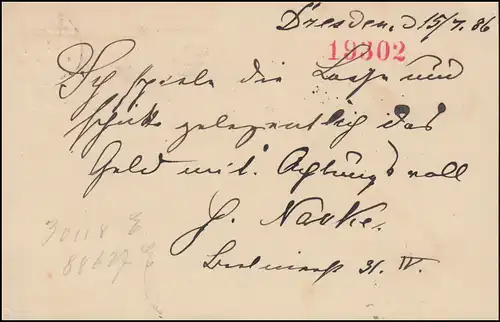 Dresden, d 15/7. 86
19302
Ich spiele die Loose und
schicke gelegentlich das
Geld mit. Achtungsvoll
H. Nacke.
31. IV.
30118 E
88627 E